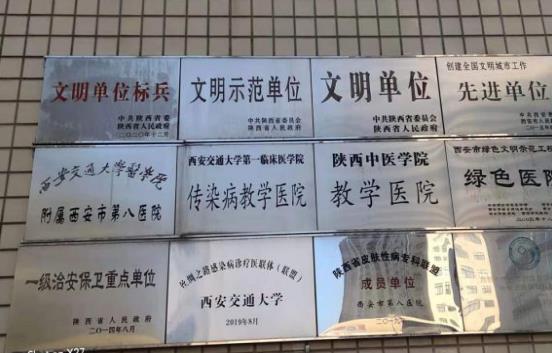 文明单位标兵
中共陕西省委
陕西省人民政府
二〇二〇年十二月
文明示范单位
中共陕西省委员会
陕西省人民政府
文明单位
中共陕西省委员会
陕西省人民政府
创建全国文明城市工作
先进单位
西安交通大学医学院
附属西安市第八医院
西安交通大学第一临床医学院
传染病教学医院
陕西中医学院
教学医院
西安市绿色文明示范工程
绿色医院
一级治安保卫重点单位
陕西省人民政府
二〇一四年八月
丝绸之路感染病诊疗医联体(联盟)
西安交通大学
2019年8月
陕西省皮肤性病专科联盟
成员单位
西安市第八医院